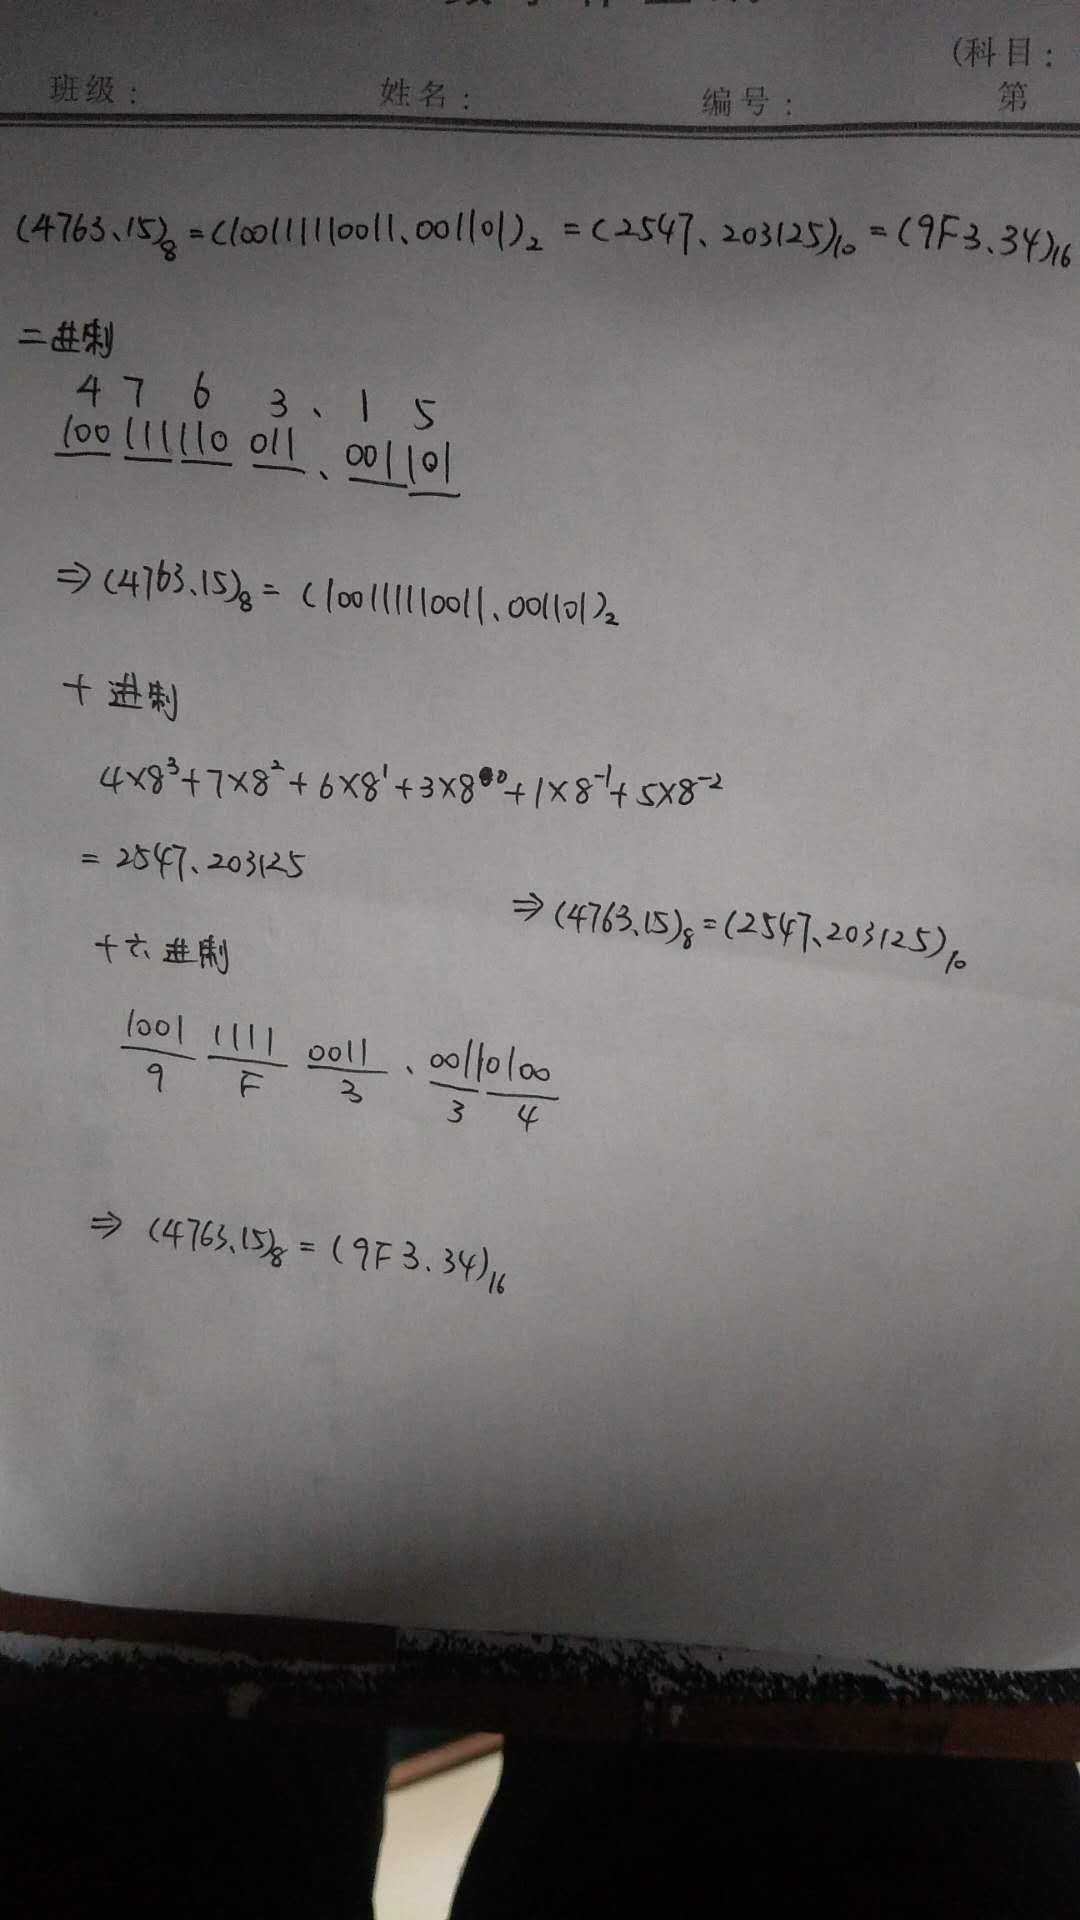 (科目:
班级: 姓名: 编号: 第
(4763、15)₈ = (100111110011、001101)₂ = (2547、203125)₁₀ = (9F3、34)₁₆
二进制
4 7 6 3 、 1 5
100 111 110 011 、 001 101
⇒ (4763、15)₈ = (100111110011、001101)₂
十进制
4×8³+7×8²+6×8¹+3×8⁰+1×8⁻¹+5×8⁻²
= 2547、203125
⇒ (4763、15)₈ = (2547、203125)₁₀
十六进制
1001 1111 0011 、 0011 0100
9 F 3 3 4
⇒ (4763、15)₈ = (9F3、34)₁₆